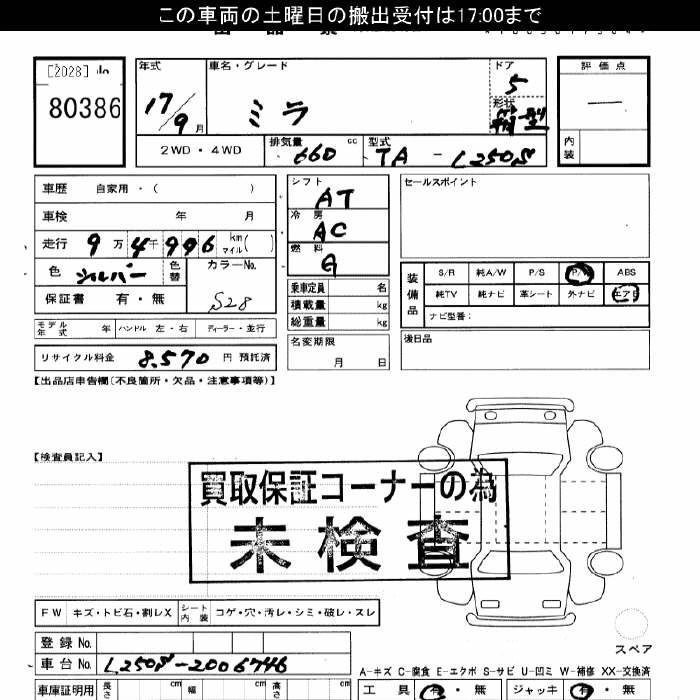 この車両の土曜日の搬出受付は17:00まで
[2028]
80386
年式
車名・グレード
ドア
評価点
17/9月
ミラ
5
形状
箱型
2WD・4WD
排気量 660 cc
型式 TA - L250S
内装
車歴 自家用・( )
シフト AT
セールスポイント
車検 年 月
冷房 AC
走行 9万4千996 km マイル( )
燃料 G
色 シルバー
色替
カラーNo. S28
乗車定員 名
装備品
S/R 純A/W P/S P/W ABS
保証書 有・無
積載量 kg
純TV 純ナビ 革シート 外ナビ エアB
総重量 kg
ナビ型番:
モデル年式 年 ハンドル 左・右 ディーラー・並行
名変期限 月 日
後日品
リサイクル料金 8,570 円 預託済
【出品店申告欄(不良箇所・欠品・注意事項等)】
【検査員記入】
買取保証コーナーの為
未検査
FW キズ・トビ石・割レX シート内装 コゲ・穴・汚レ・シミ・破レ・スレ
スペア
登録No.
車台No. L250S-2006746
A-キズ C-腐食 E-エクボ S-サビ U-凹ミ W-補修 XX-交換済
車庫証明用 長さ cm 幅 cm 高さ cm
工具 有・無 ジャッキ 有・無